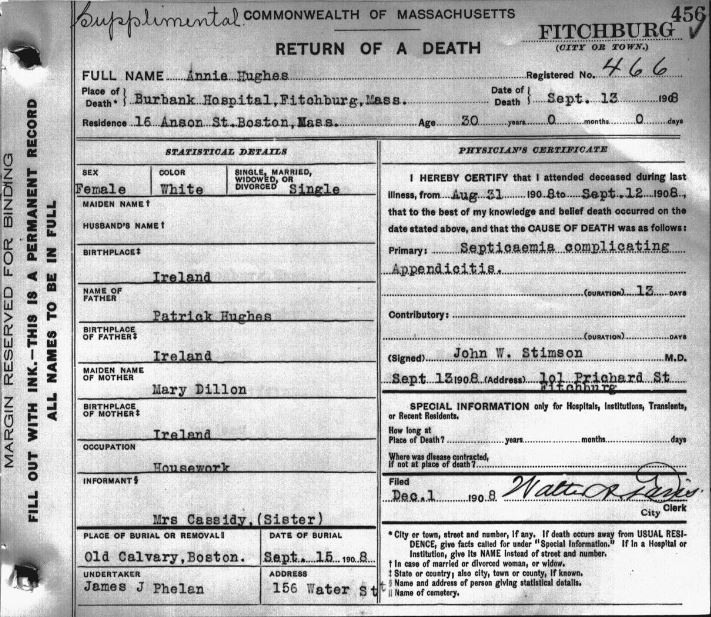 Supplimental
COMMONWEALTH OF MASSACHUSETTS
456
RETURN OF A DEATH
FITCHBURG
(CITY OR TOWN.)
FULL NAME Annie Hughes
Registered No. 466
Place of Death* } Burbank Hospital, Fitchburg, Mass.
Date of Death } Sept. 13 1908
Residence 16 Anson St. Boston, Mass. Age 30 years 0 months 0 days
MARGIN RESERVED FOR BINDING
FILL OUT WITH INK.—THIS IS A PERMANENT RECORD
ALL NAMES TO BE IN FULL
STATISTICAL DETAILS
SEX
Female
COLOR
White
SINGLE, MARRIED, WIDOWED, OR DIVORCED Single
MAIDEN NAME†
HUSBAND'S NAME†
BIRTHPLACE‡
Ireland
NAME OF FATHER
Patrick Hughes
BIRTHPLACE OF FATHER‡
Ireland
MAIDEN NAME OF MOTHER
Mary Dillon
BIRTHPLACE OF MOTHER‡
Ireland
OCCUPATION
Housework
INFORMANT§
Mrs Cassidy, (Sister)
PLACE OF BURIAL OR REMOVAL‖
Old Calvary, Boston.
DATE OF BURIAL
Sept. 15 1908
UNDERTAKER
James J Phelan
ADDRESS
156 Water St
PHYSICIAN'S CERTIFICATE
I HEREBY CERTIFY that I attended deceased during last
illness, from Aug 31 1908 to Sept. 12 1908,
that to the best of my knowledge and belief death occurred on the
date stated above, and that the CAUSE OF DEATH was as follows:
Primary: Septicaemia complicating
Appendicitis.
(DURATION) 13 DAYS
Contributory:
(DURATION) DAYS
(Signed) John W. Stimson M.D.
Sept 13 1908 (Address) 101 Prichard St
Fitchburg
SPECIAL INFORMATION only for Hospitals, Institutions, Transients,
or Recent Residents.
How long at
Place of Death? years months days
Where was disease contracted,
if not at place of death?
Filed
Dec. 1 1908
Walter A Davis
City Clerk
* City or town, street and number, if any. If death occurs away from USUAL RESI-
DENCE, give facts called for under "Special Information." If in a Hospital or
Institution, give its NAME instead of street and number.
† In case of married or divorced woman, or widow.
‡ State or country; also city, town or county, if known.
§ Name and address of person giving statistical details.
‖ Name of cemetery.